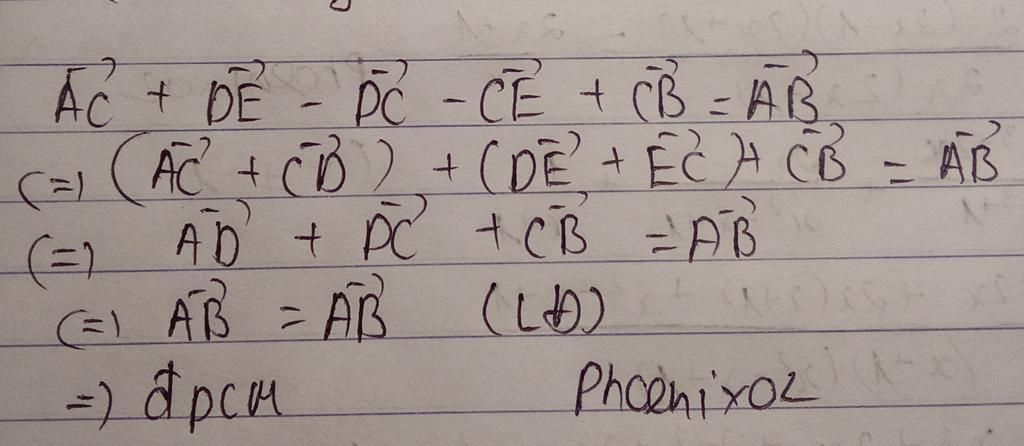 AC⃗ + DE⃗ - DC⃗ - CE⃗ + CB⃗ = AB⃗
(=) (AC⃗ + CD⃗) + (DE⃗ + EC⃗) + CB⃗ = AB⃗
(=) AD⃗ + DC⃗ + CB⃗ = AB⃗
(=) AB⃗ = AB⃗ (LĐ)
=) đpcm Phoenix02